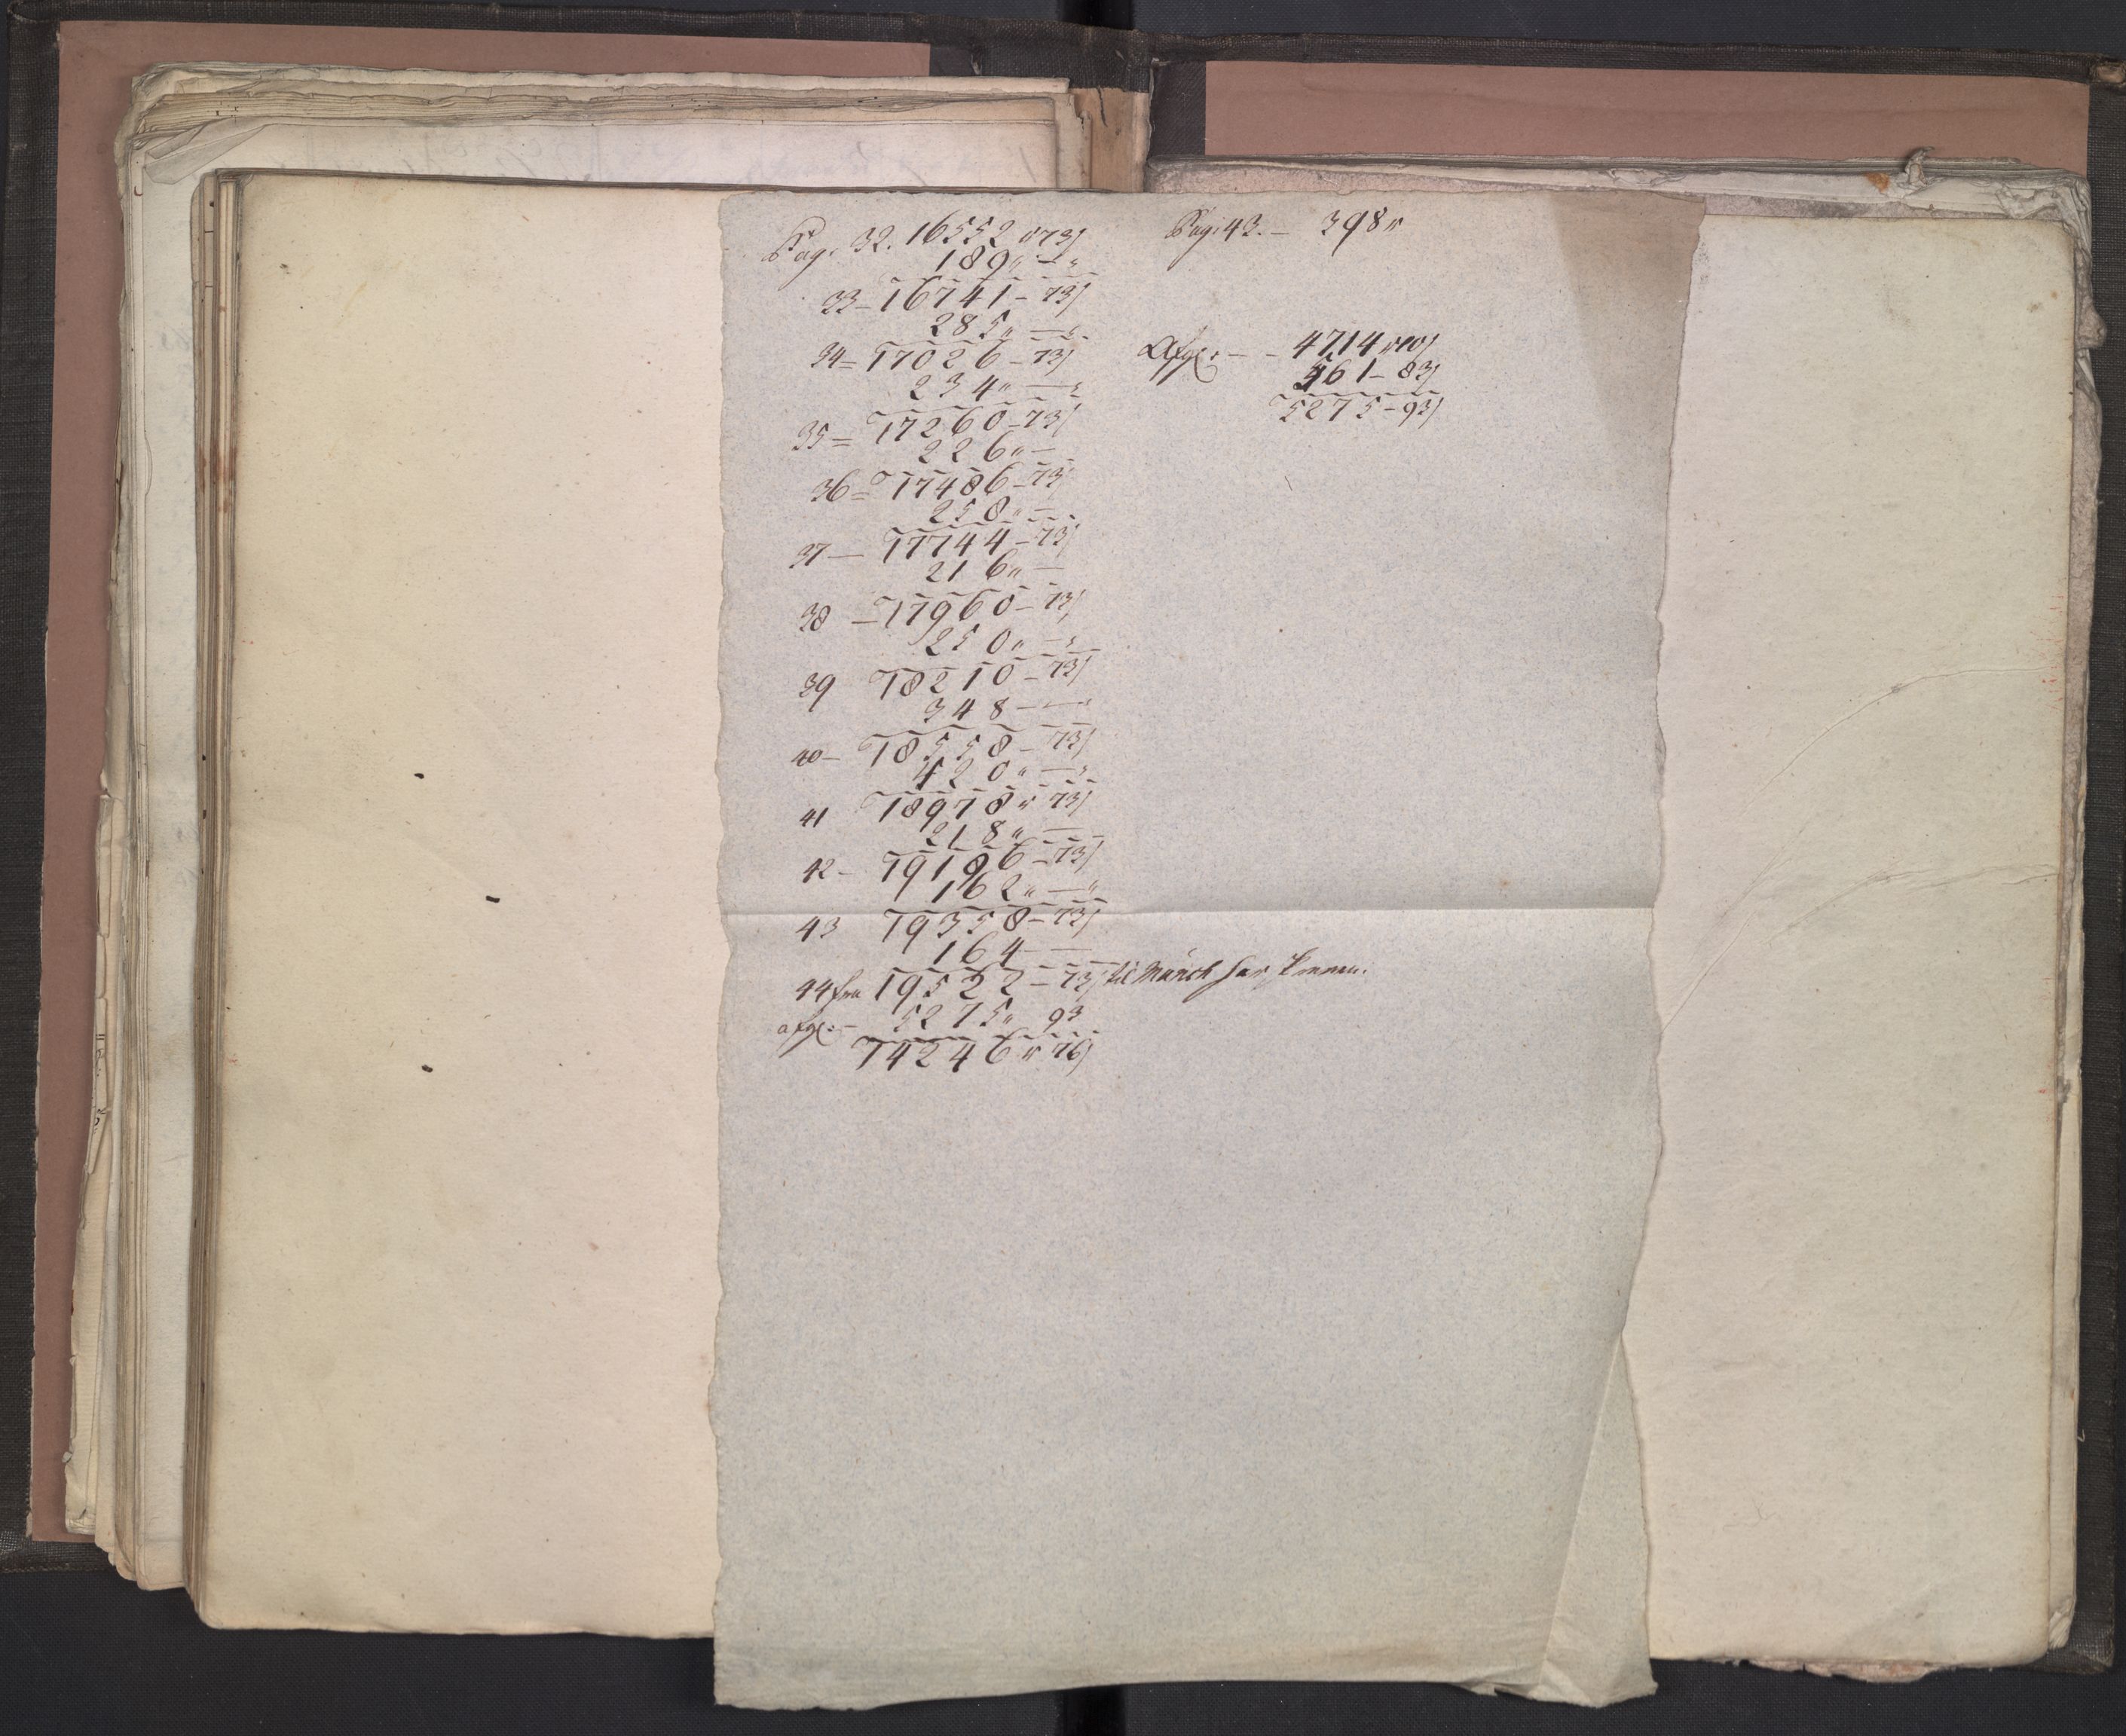 Pag. 32. 16552 " 73 s
189 " — "
33 — 16741 — 73 s
285 " — "
34 = 17026 — 73 s
234 " — "
35 = 17260 — 73 s
226 " —
36 = 17486 — 73 s
258 " —
37 — 17744 — 73 s
216 " —
38 — 17960 — 73 s
250 " — "
39 18210 — 73 s
348 — —
40 — 18558 — 73 s
420 " — "
41 18978 " 73 s
218 " —
42 — 19196 — 73 s
162 " — "
43 19358 — 73 s
164 — —
44 fra 19522 — 73 s til Munch
afg: — 5275 " 93
14246 " 76 s
Pag: 43. — 398 "
Afg: — — 4714 " 10 s
561 — 83 s
5275 — 93 s